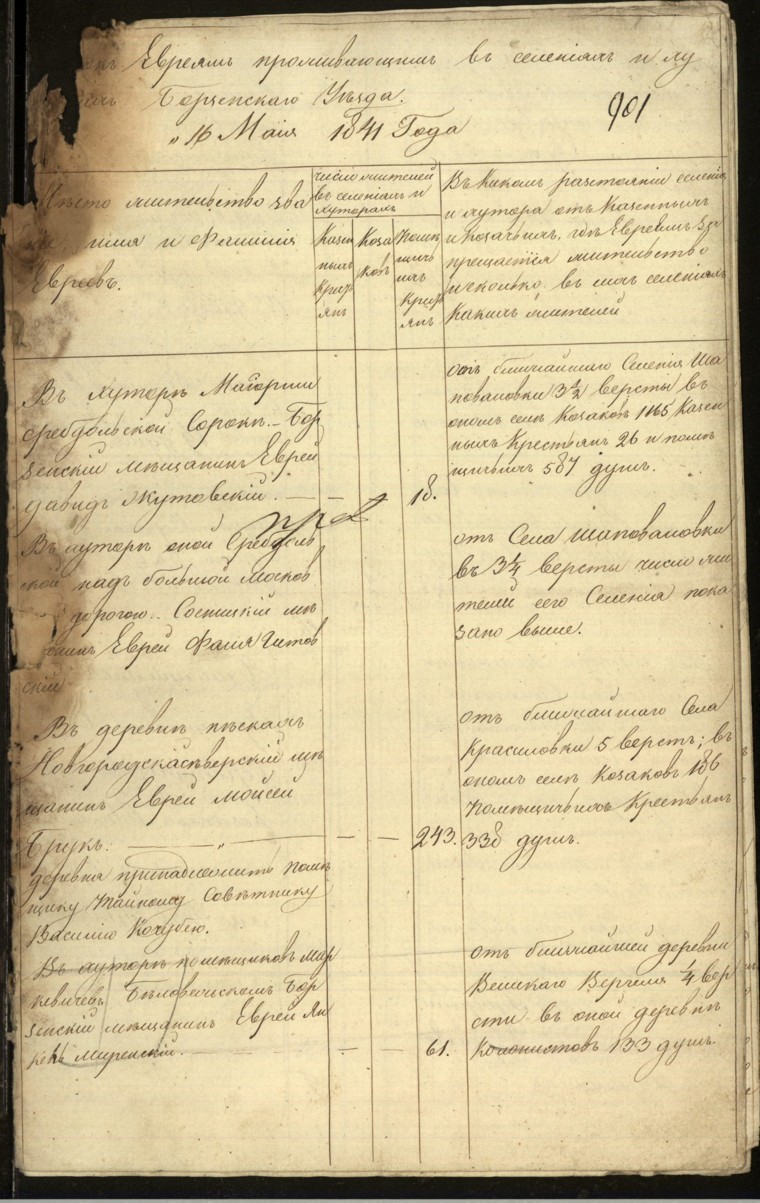 Евреямъ проживающимъ въ селеніяхъ и ху
Борзенскаго Уѣзда.
„16 Маія 1841 Года
901
Мѣсто жительство зва
имя и Фамилія
Евреевъ.
число жителей
въ селеніяхъ и
хуторахъ
Казен
ныхъ
Крес
янъ
Коза
ковъ
Помѣ
щичь
ихъ
Крест
янъ
Въ какомъ разстояніи селенія
и хутора отъ Казенныхъ
и Козачьихъ, гдѣ Евреямъ За
прещается жительство
и сколько въ тѣхъ селеніяхъ
какихъ жителей
Въ хуторѣ Маіорши
Сребдольской Сороки. – Бор
зенскій мѣщанинъ Еврей
Давидъ Жутовскій. — — 18.
отъ ближайшаго Селенія Ша
поваловки 3½ версты въ
ономъ селѣ Козаковъ 1165 Казен
ныхъ Крестьянъ 26 и помѣ
щичьихъ 587 душъ.
Въ хуторѣ оной Сребдоль
ской надъ большой Москов
дорогою.. Сосницкій мѣ
Еврей
скій
отъ Села Шаповаловки
въ 3¼ версты число жи
телей его Селенія пока
зано выше.
Въ деревнѣ пѣскахъ
Новгородсѣверскій мѣ
щанинъ Еврей Мойсей
Брукъ. — „ — — — 243.
деревна принадлежитъ помѣ
щику Тайному Совѣтнику
Василію Кочубею.
отъ ближайшаго Села
Красиловки 5 верстъ; въ
ономъ селѣ Козаковъ 186
Помѣщичьихъ Крестьянъ
338 душъ.
Въ хуторѣ помѣщиковъ Мар
кевичевъ Бѣловѣжскомъ Бор
зенскій мѣщанинъ Еврей Ян
кель Миренскій. — — — 61.
отъ ближайшей деревни
Великаго Вергеля ¼ вер
сти въ оной деревнѣ
Колонистовъ 133 душъ.